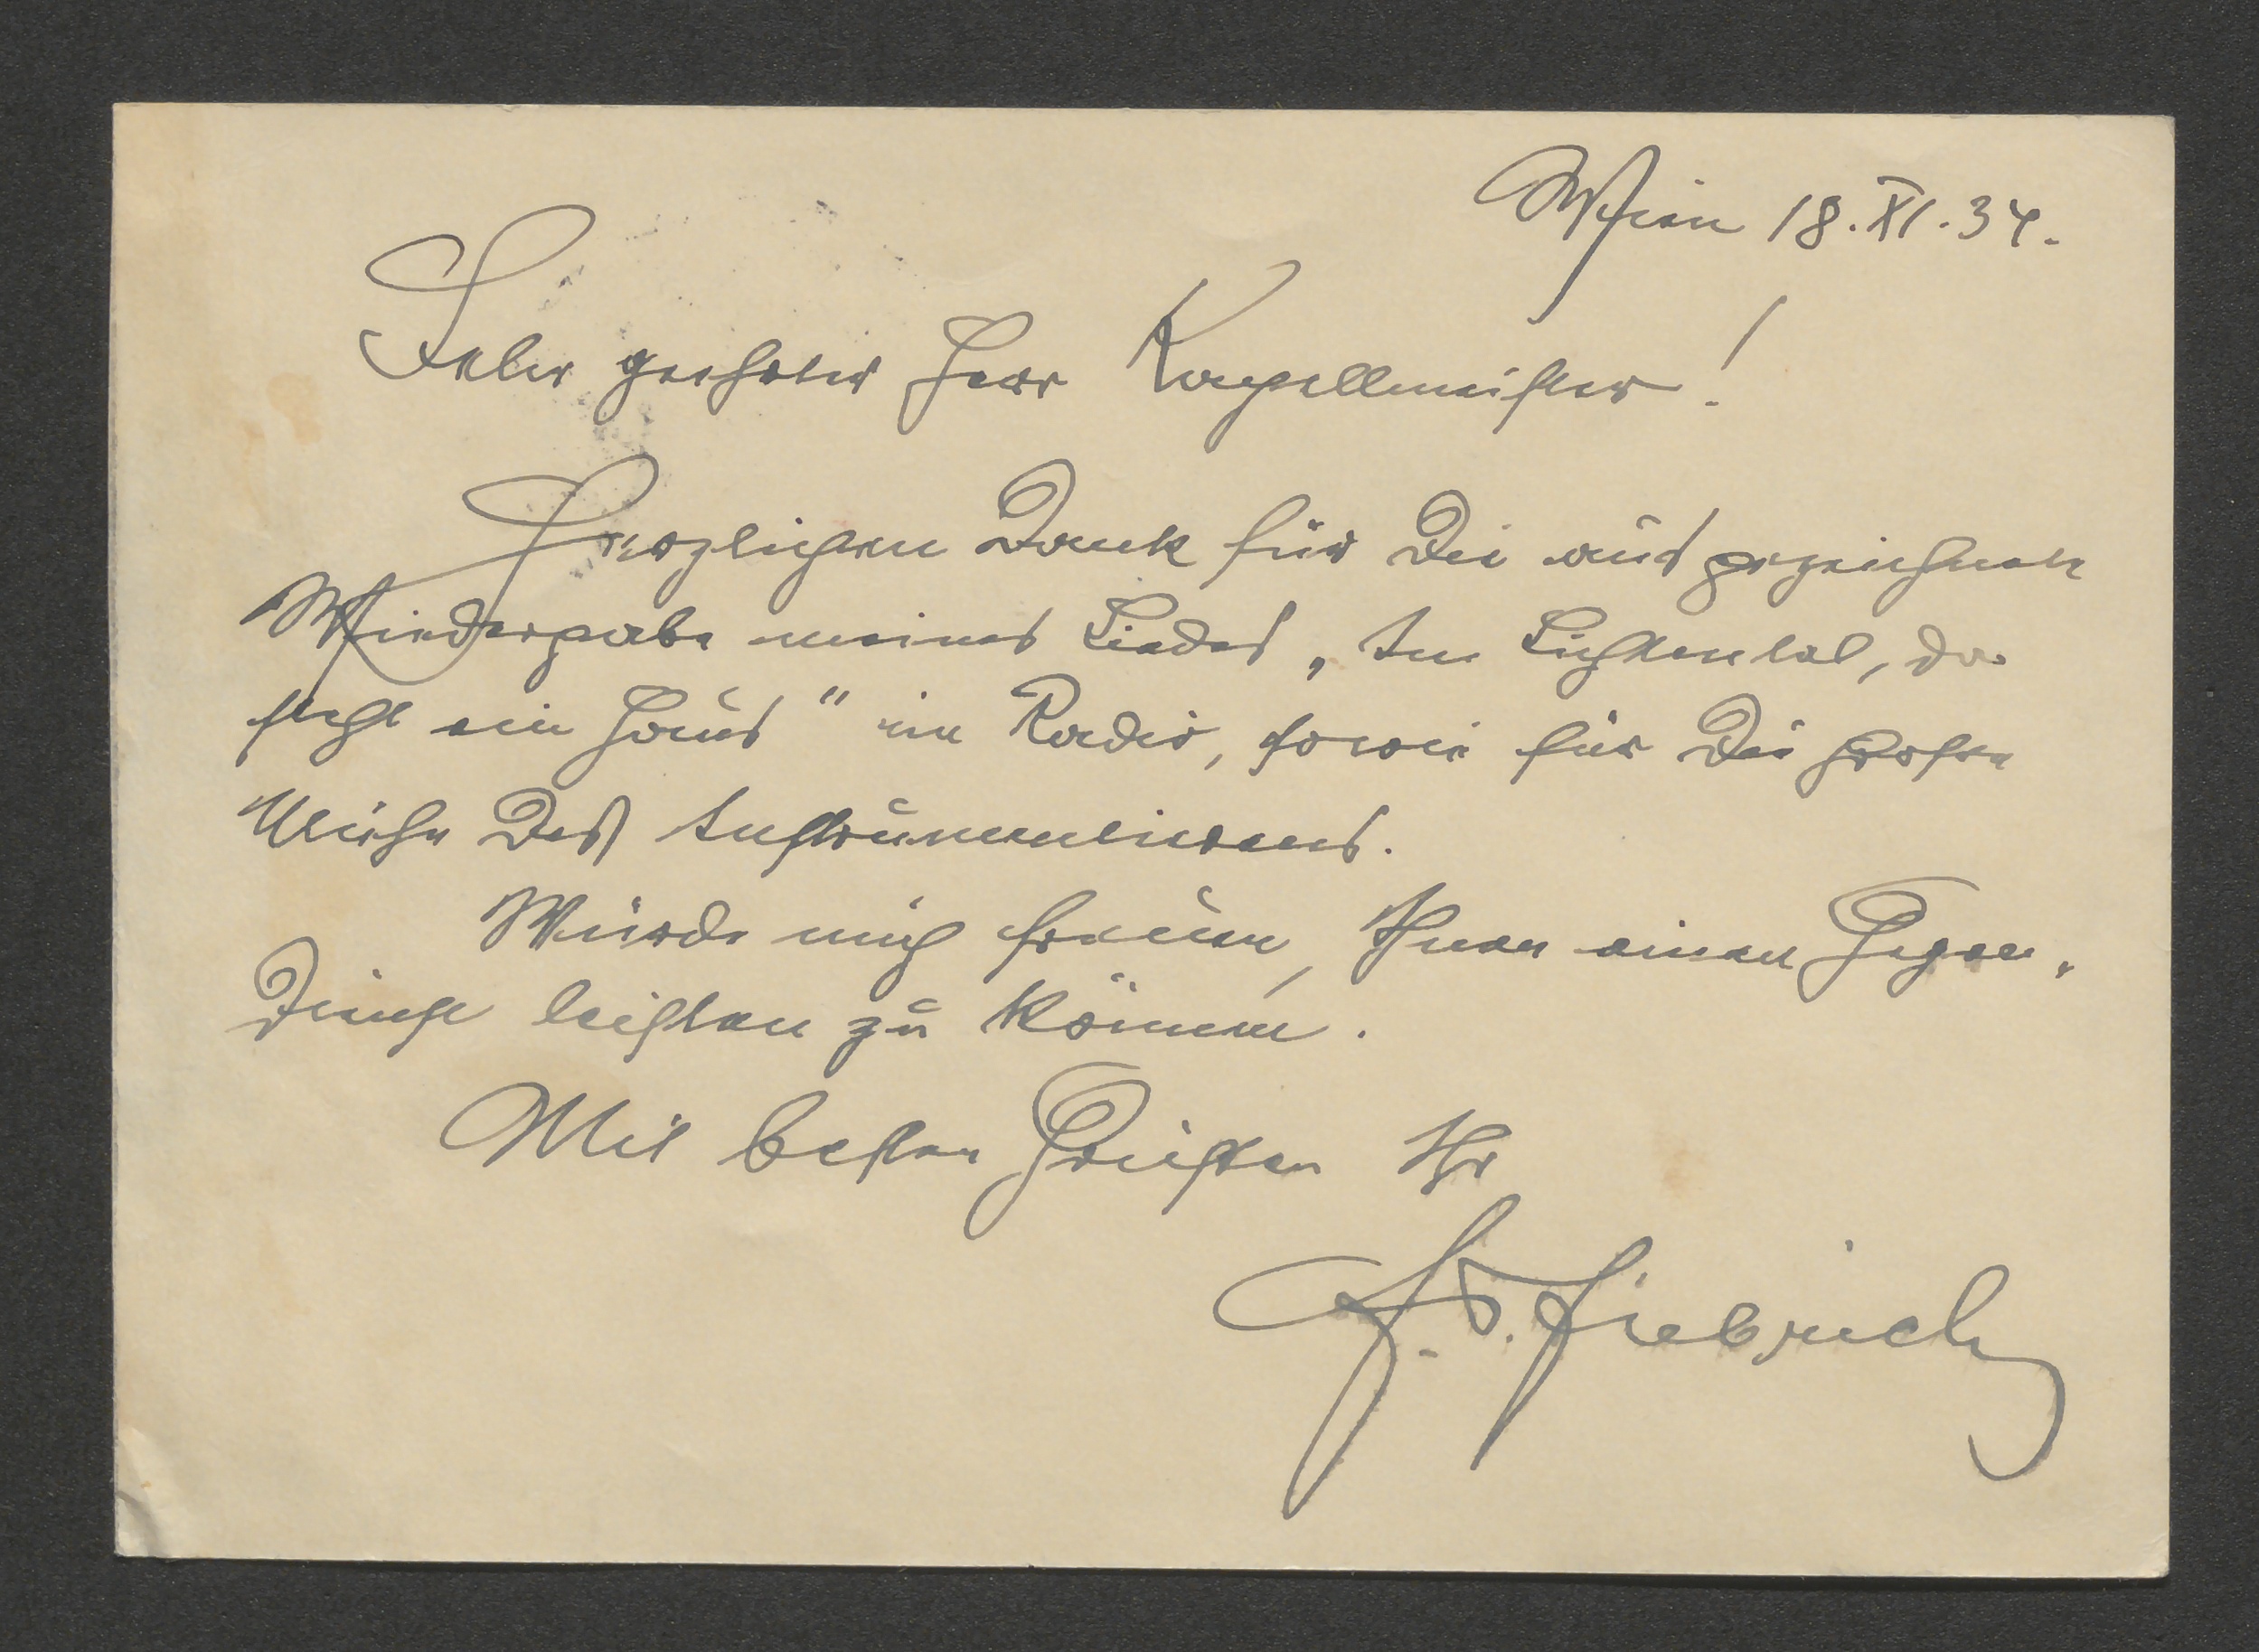 Wien 18. XI. 34.
Sehr geehrter Herr Kapellmeister!
Herzlichen Dank für die ausgezeichnete
Wiedergabe meines Liedes „Im Lichtental, da
steht ein Haus" im Radio, sowie für die große
Mühe des Instrumentierens.
Würde mich freuen, Ihnen einen Gegen„
dienst leisten zu können.
Mit besten Grüßen Ihr
F. P. Fiebrich